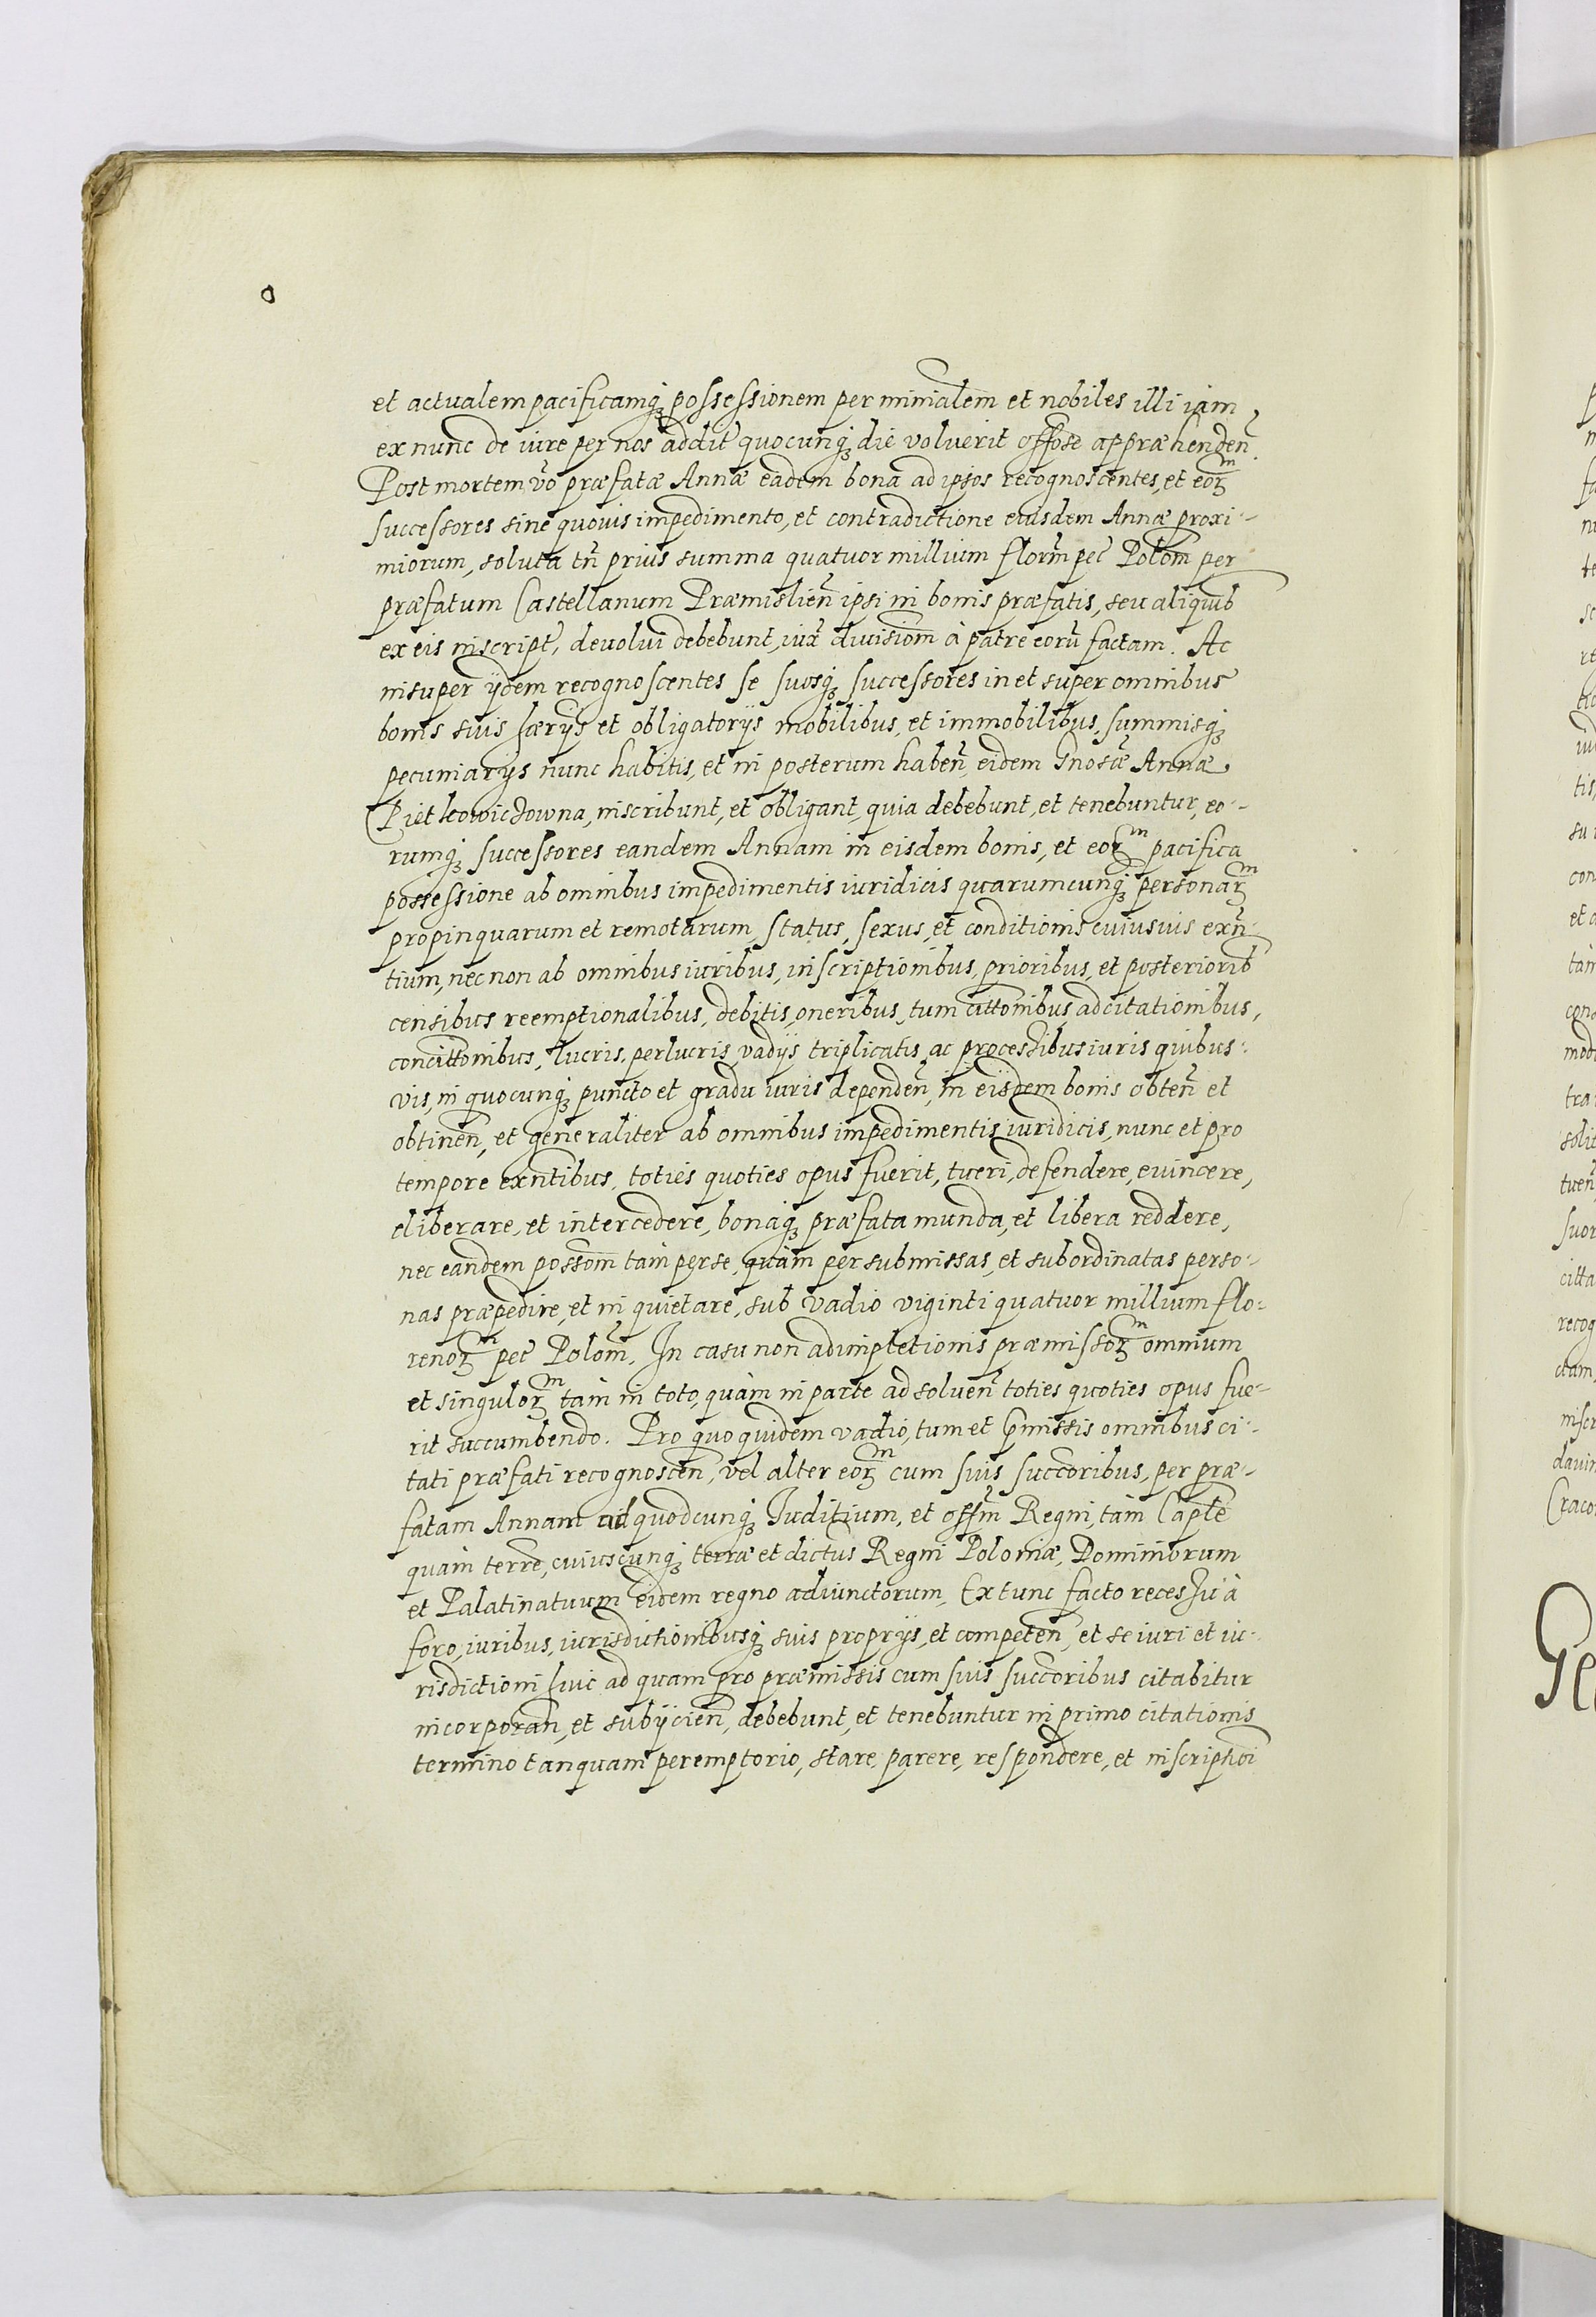 et actualem pacificamq₃ possessionem per minialem̃ et nobiles illi iam
ex nunc de iure per nos addit̃ quocunq₃ die voluerit offose appræhendeñ.
Post mortem, vo͂ præfatæ Annæ eadem bona ad ipsos recognoscentes, et eorꝫᵐ
successores sine quouis impedimento, et contradictione eiusdem Annæ proxi-
miorum, soluta tñ prius summa quatuor millium florm̃ pec̃ Polom̃ per
præfatum Castellanum Præmislieñ ipsi in bonis præfatis, seu aliquib
ex eis inscript̃, deuolui debebunt, iux̃ diuisiom̃ à patre eorũ factam. Ac
insuper ijdem recognoscentes se suosq₃ successores in et super omnibus
bonis suis hærijs et obligatorijs mobilibus, et immobilibus, summisq₃
pecuniarijs nunc habitis, et in posterum habeñ, eidem Gnosæ̃ Annæ
Pietkowiczowna, inscribunt, et obligant, quia debebunt, et tenebuntur, eo-
rumq₃ successores eandem Annam in eisdem bonis, et eorꝫᵐ pacifica
possessione ab omnibus impedimentis iuridicis quarumcunq₃ personarꝫᵐ
propinquarum et remotarum, status, sexus, et conditionis cuiusuis exñ-
tium, nec non ab omnibus iuribus, inscriptionibus, prioribus, et posteriorib
censibus reemptionalibus, debitis, oneribus, tum cittonibus, adcitationibus,
concittonibus, lucris, perlucris, vadijs triplicatis, ac processibus iuris quibus-
vis, in quocunq₃ puncto et gradu iuris dependeñ, in eisdem bonis obteñ et
obtineñ, et generaliter ab omnibus impedimentis iuridicis, nunc et pro
tempore exñtibus, toties quoties opus fuerit, tueri, defendere, euincere,
eliberare, et intercedere, bonaq₃ præfata munda, et libera reddere,
nec eandem possom̃ tàm per se, quàm per submissas, et subordinatas perso-
nas præpedire, et in quietare, sub vadio viginti quatuor millium flo-
renorꝫᵐ pec̃ Polom̃. In casu non adimpletionis præmissorꝫᵐ omnium
et singulorꝫᵐ tàm in toto, quàm in parte ad solueñ toties quoties opus fue-
rit succumbendo. Pro quo quidem vadio, tum et p̃missis omnibus ci-
tati præfati recognosceñ, vel alter eorꝫᵐ cum suis succoribus, per præ-
fatam Annam ad quodcunq₃ Iuditium, et offm̃ Regni, tàm Caple͂
quàm terre͂, cuiuscunq₃ terræ et dictus Regni Poloniæ, Dominiorum
et Palatinatuum eidem regno adiunctorum, Ex tunc facto recessu à
foro, iuribus, iurisdictionibusq₃ suis proprijs, et competeñ, et se iuri et iu-
risdictioni huic ad quam pro præmissis cum suis succoribus citabitur
incorporañ, et subijcieñ, debebunt, et tenebuntur in primo citationis
termino tanquam peremptorio, stare, parere, respondere, et inscriptioi